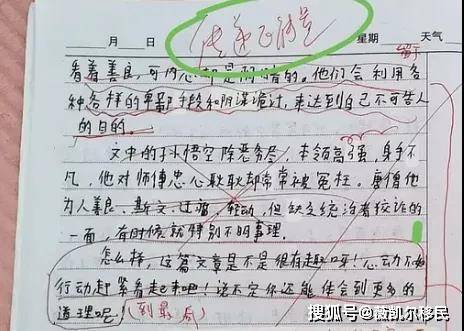 传递正能量
月 日 星期 天气
看着善良，可内心却是阴暗的。他们会利用各
种各样的卑鄙手段和阴谋诡计，来达到自己不可告人
的目的。
文中的孙悟空除恶务尽，本领高强，身手不
凡，他对师傅忠心耿耿却常常被冤枉。唐僧他
为人善良、斯文、过，但缺乏统治者狡诈的
一面，有时候就特别不明事理。
怎么样，这篇文章是不是很有趣呀！心动不如
行动赶紧看起来吧！说不定你还能体会到更多的
道理呢
搜狐号@薇凯尔移民